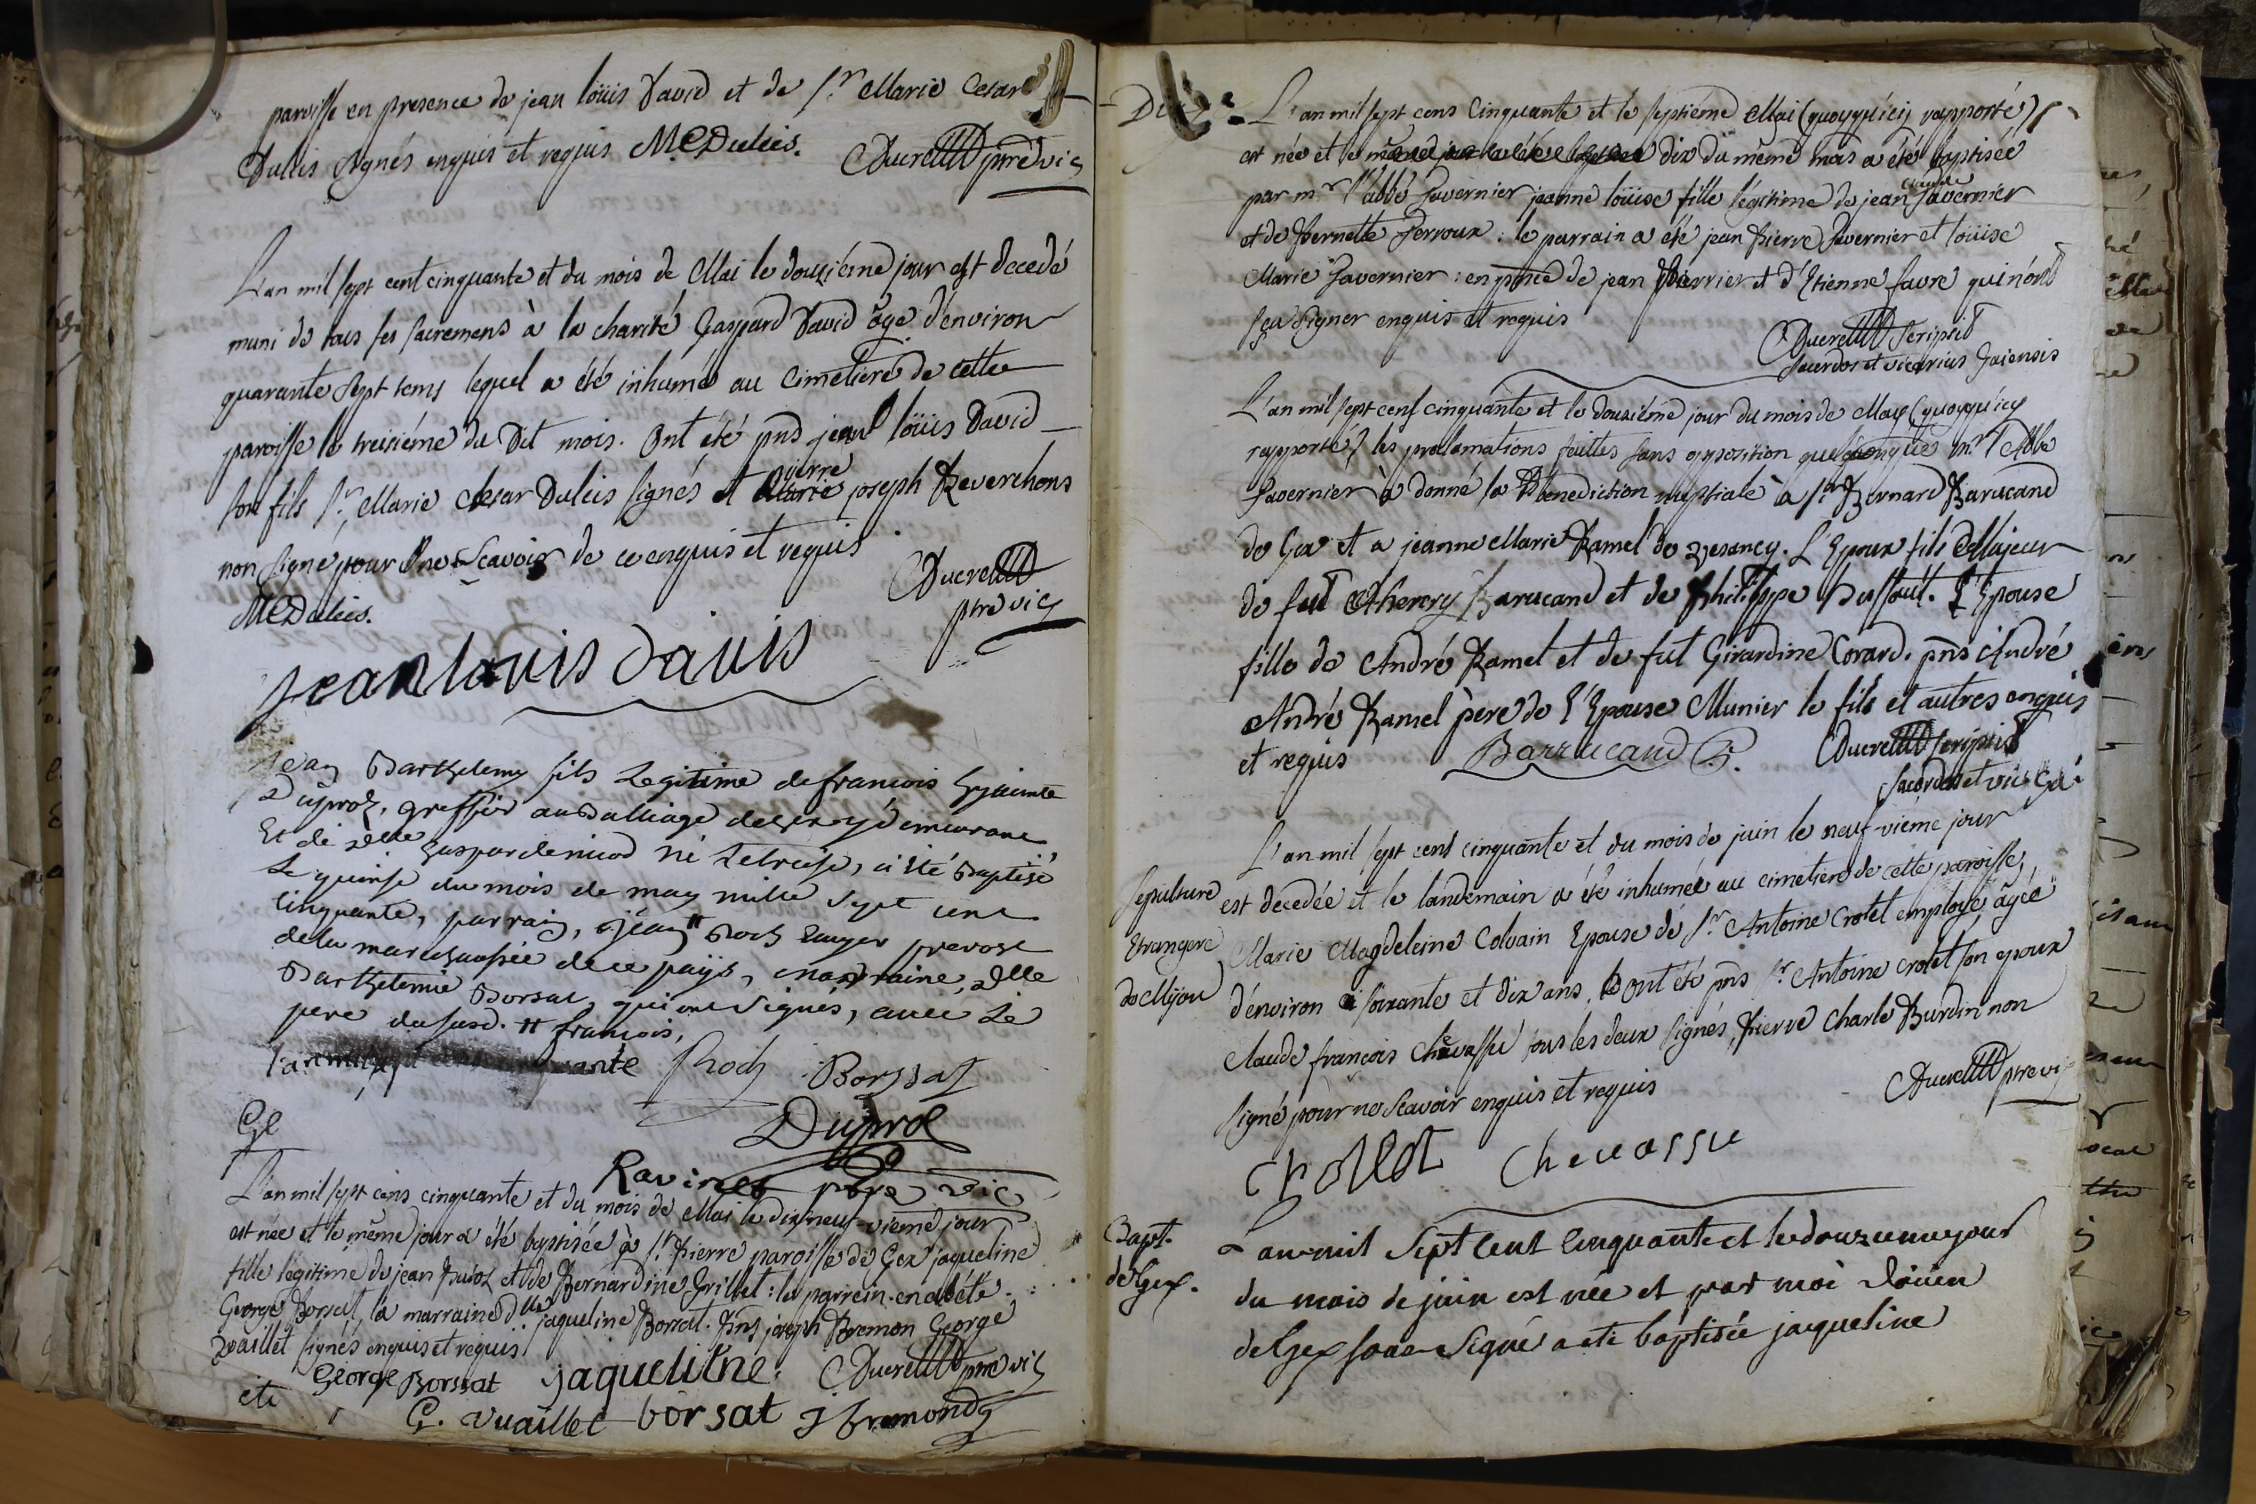 paroisse en presence de jean loüis David et de Sr. Marie Cesar
Duliis signés enquis et requis MCDuliis.
Ducrettet ptre vic
L'an mil sept cent cinquante et du mois de Mai le douziéme jour est decedé
muni de tous ses sacremens à la charité Gaspard David âgé d'environ
quarante sept tems lequel a été inhumé au cimetiere de cette
paroisse le treisiéme du dit mois. Ont été pns jean loüis David
son fils Sr. Marie Cesar Duliis signés et pierre joseph Reverchons
non signé pour ne scavoir de ce enquis et requis
Ducrettet
ptre vic
MCDuliis.
jean louis david
jean Barthelemy fils Legitime de francois hyacinte
Duproz, greffier au Balliage de Gex y demeurant
Et de delle gasparde nicod né Letreise, a été Baptisé
Le quinse du mois de may mille sept cent
Cinquante, parrain, jean # Roch auger prevost
de la marechaussée de ce païs, marraine, delle
Barthelemie Borsat, qui ont signés, avec Le
pere du susd. # francois,
Roch Borssat
Duproz
Ge
Ravinet ptre vic
L'an mil sept cens cinquante et du mois de Mai le dixneuf-viéme jour
est née et le même jour a été baptisée à St. Pierre paroisse de Gex jaqueline
fille légitime de jean Duroz et de Bernardine Grillet: le parrein en a été
George Borsat, la marraine dlle jaqueline Borsat. Pns joseph Bremon George
Vuaillet signés enquis et requis
George Borssat jaqueline Ducrettet ptre vic
G. Vuaillet borsat J Bremond
L'an mil sept cens cinquante et le septiéme Mai (quoyqu'icy rapporté)
est née et le dix du même mois a été baptisée
par mr. l'abbé Tavernier jeanne loüise fille légitime de jean claude Tavernier
et de Pernette Perroux: le parrain a été jean Pierre Tavernier et loüise
Marie Tavernier: en pnce de jean Perrier et d'Etienne favre qui n'ont
sçu signer enquis et requis
Ducrettet scripsit
sacerdos et vicarius Gaiensis
L'an mil sept cent cinquante et le douziéme jour du mois de May (quoyqu'icy
rapporté) les proclamations faittes sans opposition quelqconque mr. l'Abbe
Tavernier à donné la Bénédiction nuptiale à Sr. Bernard Barucand
de Gex et a jeanne Marie Ramel de Vesancy. L'Epoux fils Majeur
de fut Barucand et de philippe Dussoüt. L'Epouse
fille de André Ramel et de fut Girardine Corard. pns André
André Ramel père de l'Epouse Munier le fils et autres enquis
et requis
Barrucand Ducrettet scripsit
sacerdos et vic Gai
L'an mil sept cent cinquante et du mois de juin le neuf-viéme jour
Sepulture
est decedée et le landemain a été inhumée au cimetiere de cette paroisse,
Etrangere
Marie Magdeleine Colvain Epouse de Sr. Antoine Crotet employé âgée
de Mijou
d'environ soixante et dix ans. Ont été pns Sr. Antoine crotet son epoux
Claude françois Chevassu tous les deux signés, Pierre Charle Burdin non
signé pour ne scavoir enquis et requis
Ducrettet ptre vic
Crotet Chevassu
Bapt.
de Gex.
L'an mil sept cent cinquante et le douzieme jour
du mois de juin est née et par moi doïen
de Gex sous-signé a eté baptisée jaqueline